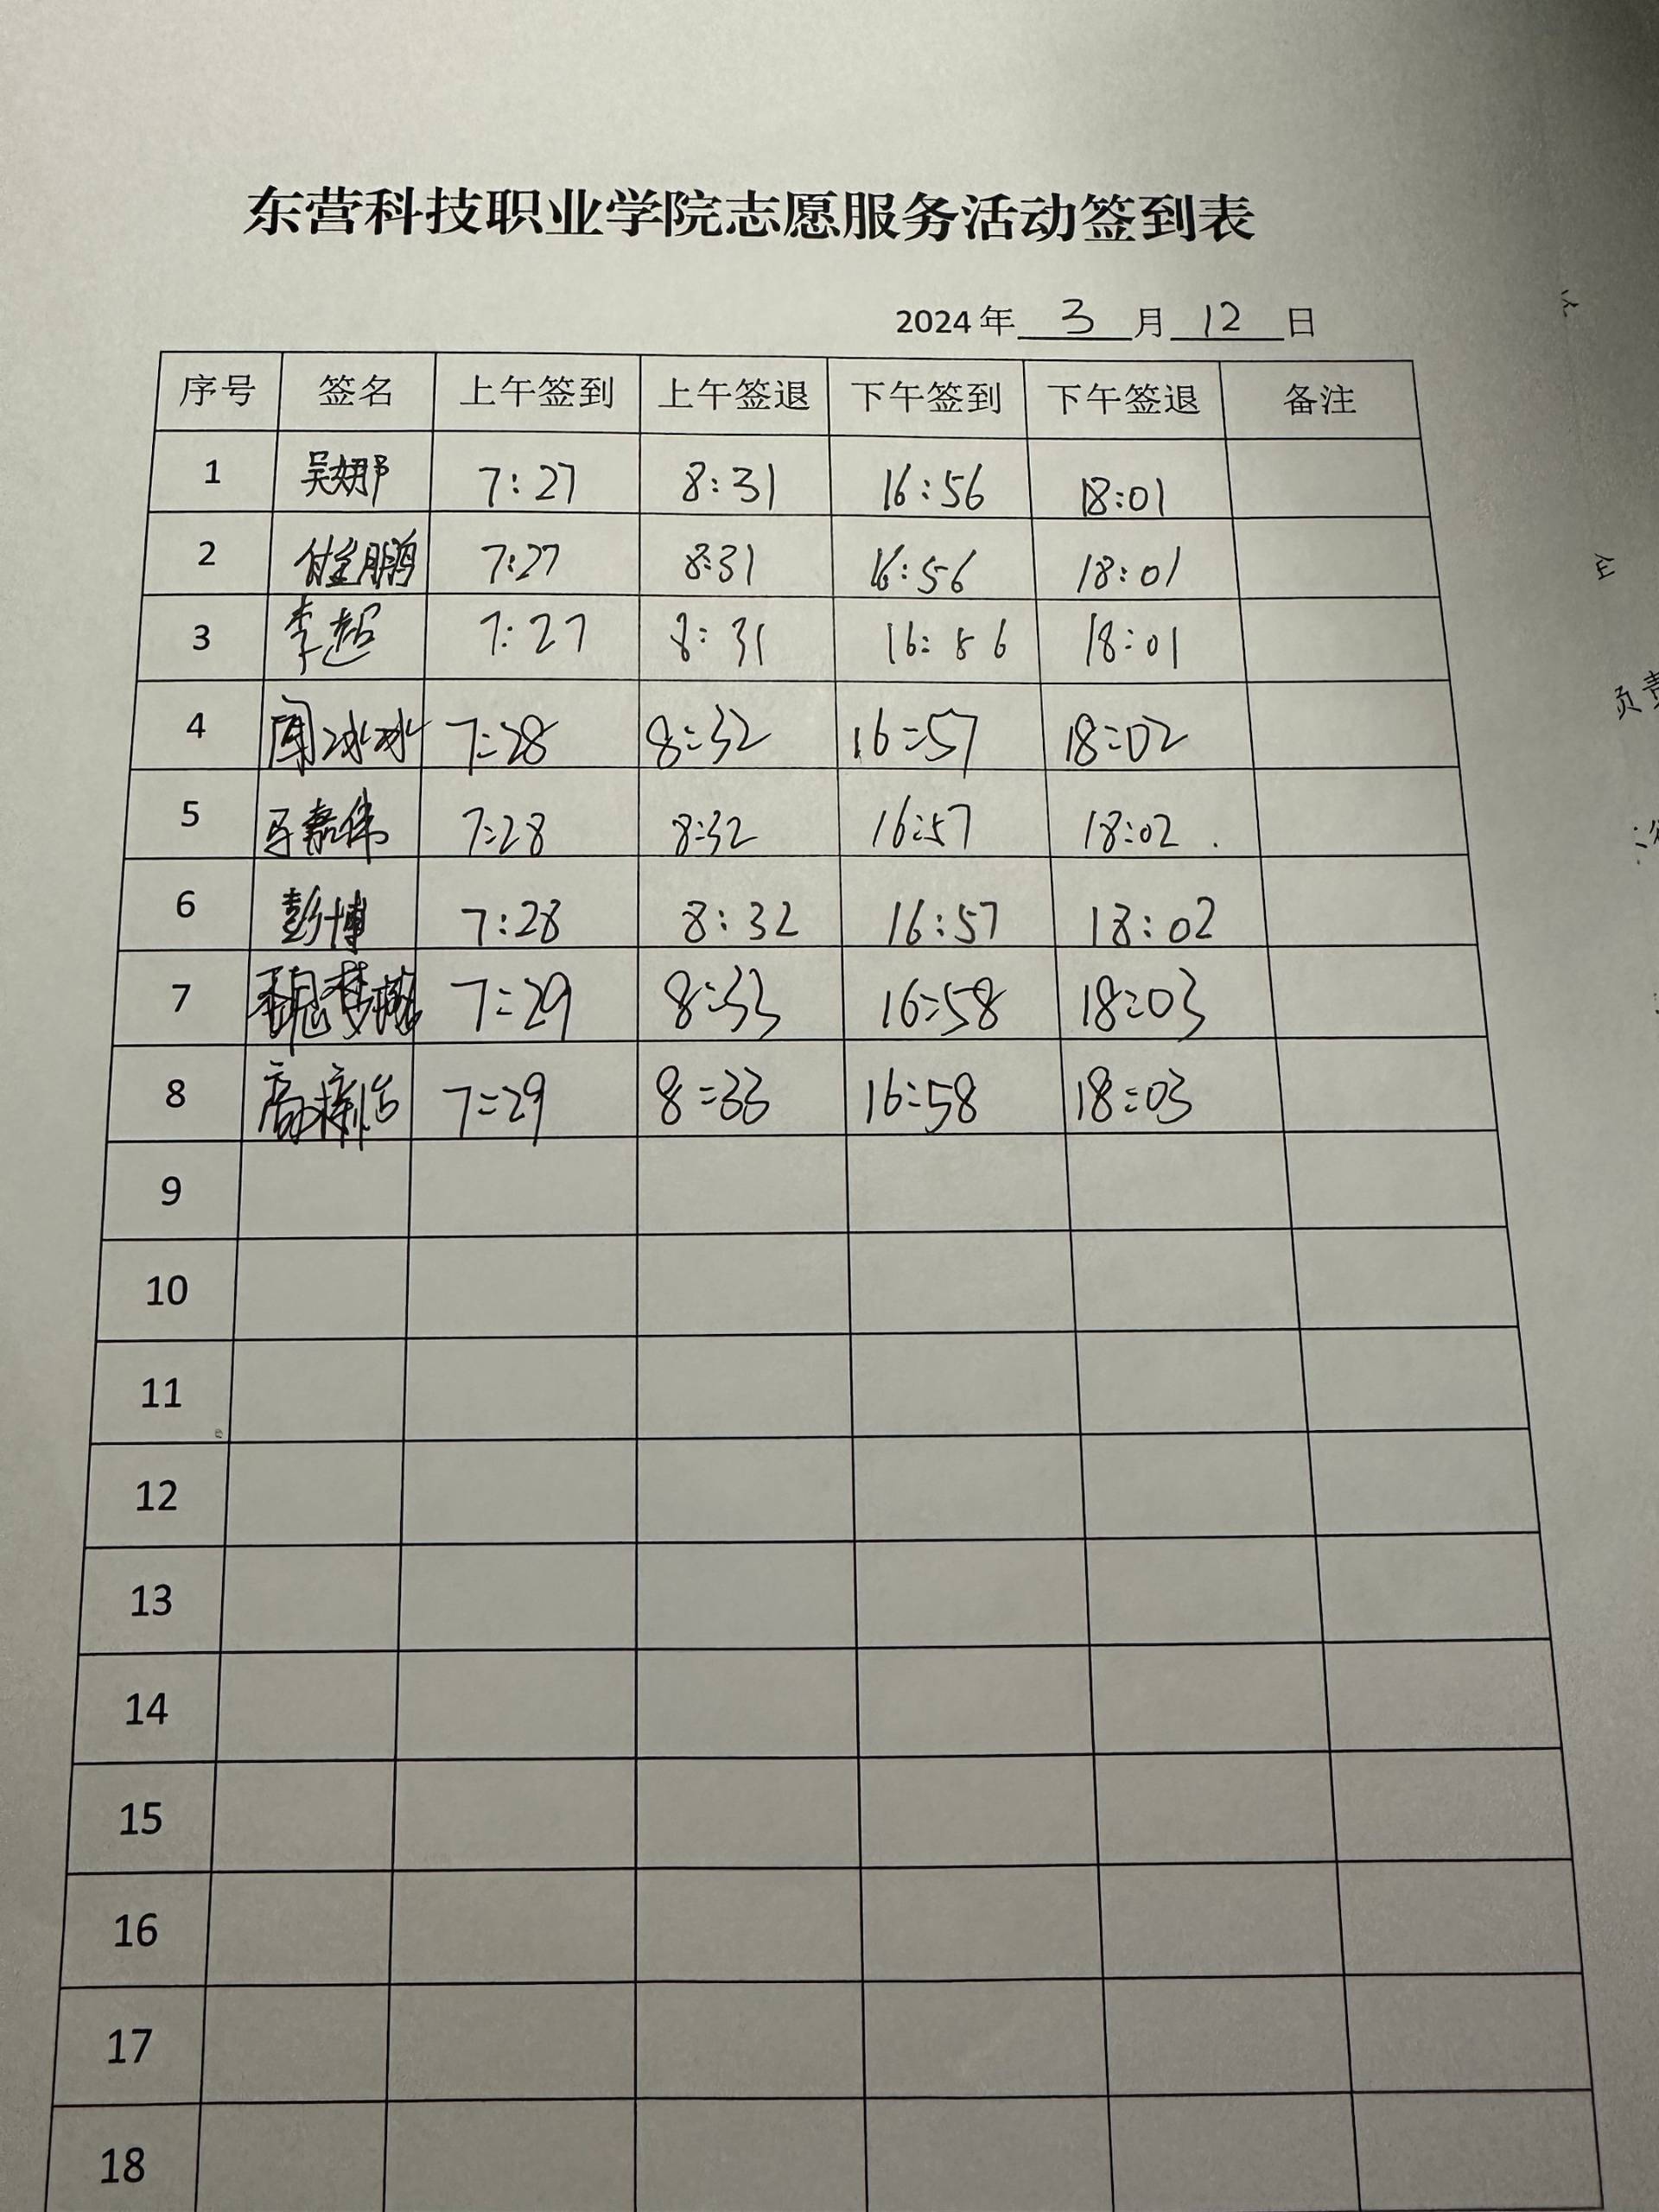 东营科技职业学院志愿服务活动签到表
2024 年 3 月 12 日
序号 签名 上午签到 上午签退 下午签到 下午签退 备注
1 7:27 8:31 16:56 18:01
2 7:27 8:31 16:56 18:01
3 李超 7:27 8:31 16:56 18:01
4 7:28 8:32 16:57 18:02
5 马嘉伟 7:28 8:32 16:57 18:02
6 彭博 7:28 8:32 16:57 18:02
7 7:29 8:33 16:58 18:03
8 7:29 8:33 16:58 18:03
9
10
11
12
13
14
15
16
17
18
负责